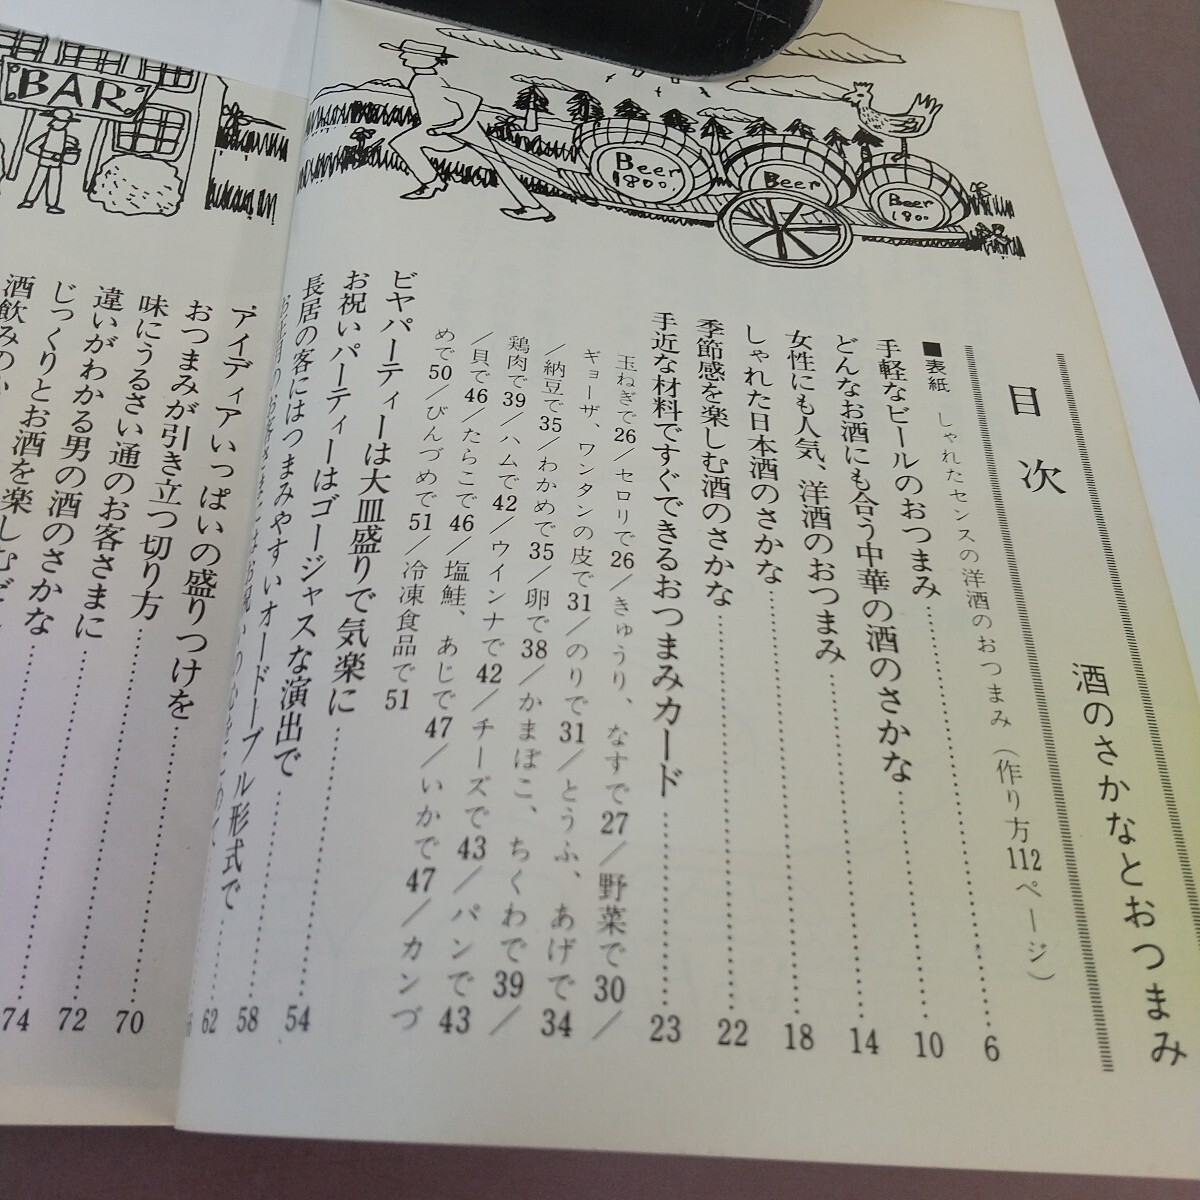 酒のさかなとおつまみ
目次
■表紙 しゃれたセンスの洋酒のおつまみ(作り方112ページ)
手軽なビールのおつまみ……6
どんなお酒にも合う中華の酒のさかな……10
女性にも人気、洋酒のおつまみ……14
しゃれた日本酒のさかな……18
季節感を楽しむ酒のさかな……22
手近な材料ですぐできるおつまみカード……23
玉ねぎで26/セロリで26/きゅうり、なすで27/野菜で30/
ギョーザ、ワンタンの皮で31/のりで31/とうふ、あげで34
/納豆で35/わかめで35/卵で38/かまぼこ、ちくわで39/
鶏肉で39/ハムで42/ウインナで42/チーズで43/パンで43
/貝で46/たらこで46/塩鮭、あじで47/いかで47/カンづ
めで50/びんづめで51/冷凍食品で51
ビヤパーティーは大皿盛りで気楽に……54
お祝いパーティーはゴージャスな演出で……58
長居の客にはつまみやすいオードーブル形式で……62
アイディアいっぱいの盛りつけを
おつまみが引き立つ切り方……70
味にうるさい通のお客さまに
違いがわかる男の酒のさかな……72
じっくりとお酒を楽しむ
酒飲みの
74
Beer
1800
Beer
Beer
1800
BAR